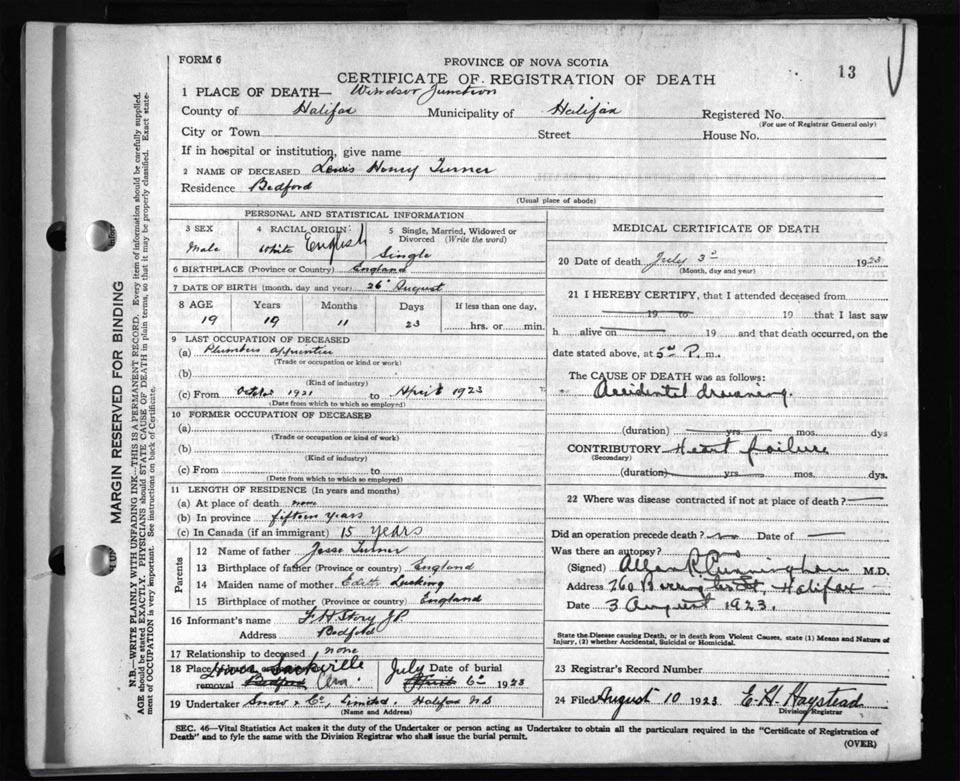 FORM 6
PROVINCE OF NOVA SCOTIA
13
CERTIFICATE OF REGISTRATION OF DEATH
1 PLACE OF DEATH— Windsor Junction
County of Halifax Municipality of Halifax Registered No.
(For use of Registrar General only)
City or Town Street House No.
If in hospital or institution, give name
2 NAME OF DECEASED Lewis Henry Turner
Residence Bedford
(Usual place of abode)
PERSONAL AND STATISTICAL INFORMATION
3 SEX 4 RACIAL ORIGIN 5 Single, Married, Widowed or Divorced (Write the word)
Male White English Single
6 BIRTHPLACE (Province or Country) England
7 DATE OF BIRTH (month, day and year) 26 August
8 AGE Years Months Days If less than one day,
19 19 11 23 hrs. or min.
9 LAST OCCUPATION OF DECEASED
(a) Plumbers apprentice
(Trade or occupation or kind or work)
(b)
(Kind of industry)
(c) From 1921 to April 1923
(Date from which to which so employed)
10 FORMER OCCUPATION OF DECEASED
(a)
(Trade or occupation or kind of work)
(b)
(Kind of industry)
(c) From to
(Date from which to which so employed)
11 LENGTH OF RESIDENCE (In years and months)
(a) At place of death none
(b) In province fifteen years
(c) In Canada (if an immigrant) 15 years
Parents
12 Name of father Jesse Turner
13 Birthplace of father (Province or country) England
14 Maiden name of mother Edith Lucking
15 Birthplace of mother (Province or country) England
16 Informant's name F. H. Story J.P.
Address Bedford
17 Relationship to deceased none
18 Place Lower Sackville July Date of burial
removal Bedford Cem. 6th 1923
19 Undertaker Snow & Co., Limited. Halifax N S
(Name and Address)
MEDICAL CERTIFICATE OF DEATH
20 Date of death July 3rd 1923
(Month, day and year)
21 I HEREBY CERTIFY, that I attended deceased from
19 to 19 that I last saw
h alive on 19 and that death occurred, on the
date stated above, at 5 P. m.
The CAUSE OF DEATH was as follows:
Accidental drowning.
(duration) yrs. mos. dys
CONTRIBUTORY Heart failure
(Secondary)
(duration) yrs. mos. dys.
22 Where was disease contracted if not at place of death?
Did an operation precede death? no Date of
Was there an autopsy? no
(Signed) Allan R Cunningham M.D.
Address 260 Barrington St, Halifax
Date 3 August 1923.
State the Disease causing Death, or in death from Violent Causes, state (1) Means and Nature of
Injury, (2) whether Accidental, Suicidal or Homicidal.
23 Registrar's Record Number
24 Filed August 10 1923 E. H. Haystead
Division Registrar
SEC. 46—Vital Statistics Act makes it the duty of the Undertaker or person acting as Undertaker to obtain all the particulars required in the "Certificate of Registration of
Death" and to fyle the same with the Division Registrar who shall issue the burial permit.
(OVER)
MARGIN RESERVED FOR BINDING
N.B.—WRITE PLAINLY WITH UNFADING INK—THIS IS A PERMANENT RECORD. Every item of information should be carefully supplied.
AGE should be stated EXACTLY. PHYSICIANS should STATE CAUSE OF DEATH in plain terms, so that it may be properly classified. Exact state-
ment of OCCUPATION is very important. See instructions on back of Certificate.